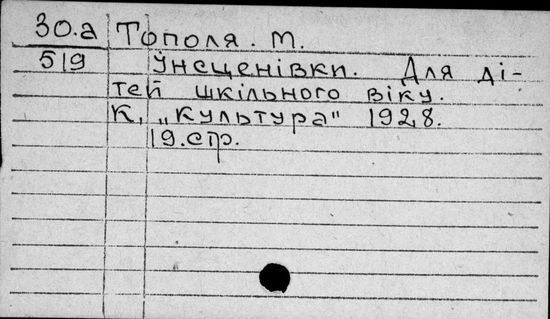 30.а Тополя. М.
519 Унсценівки. Для ді-
тей шкільного віку.
К, „Культура" 1928.
19.стр.